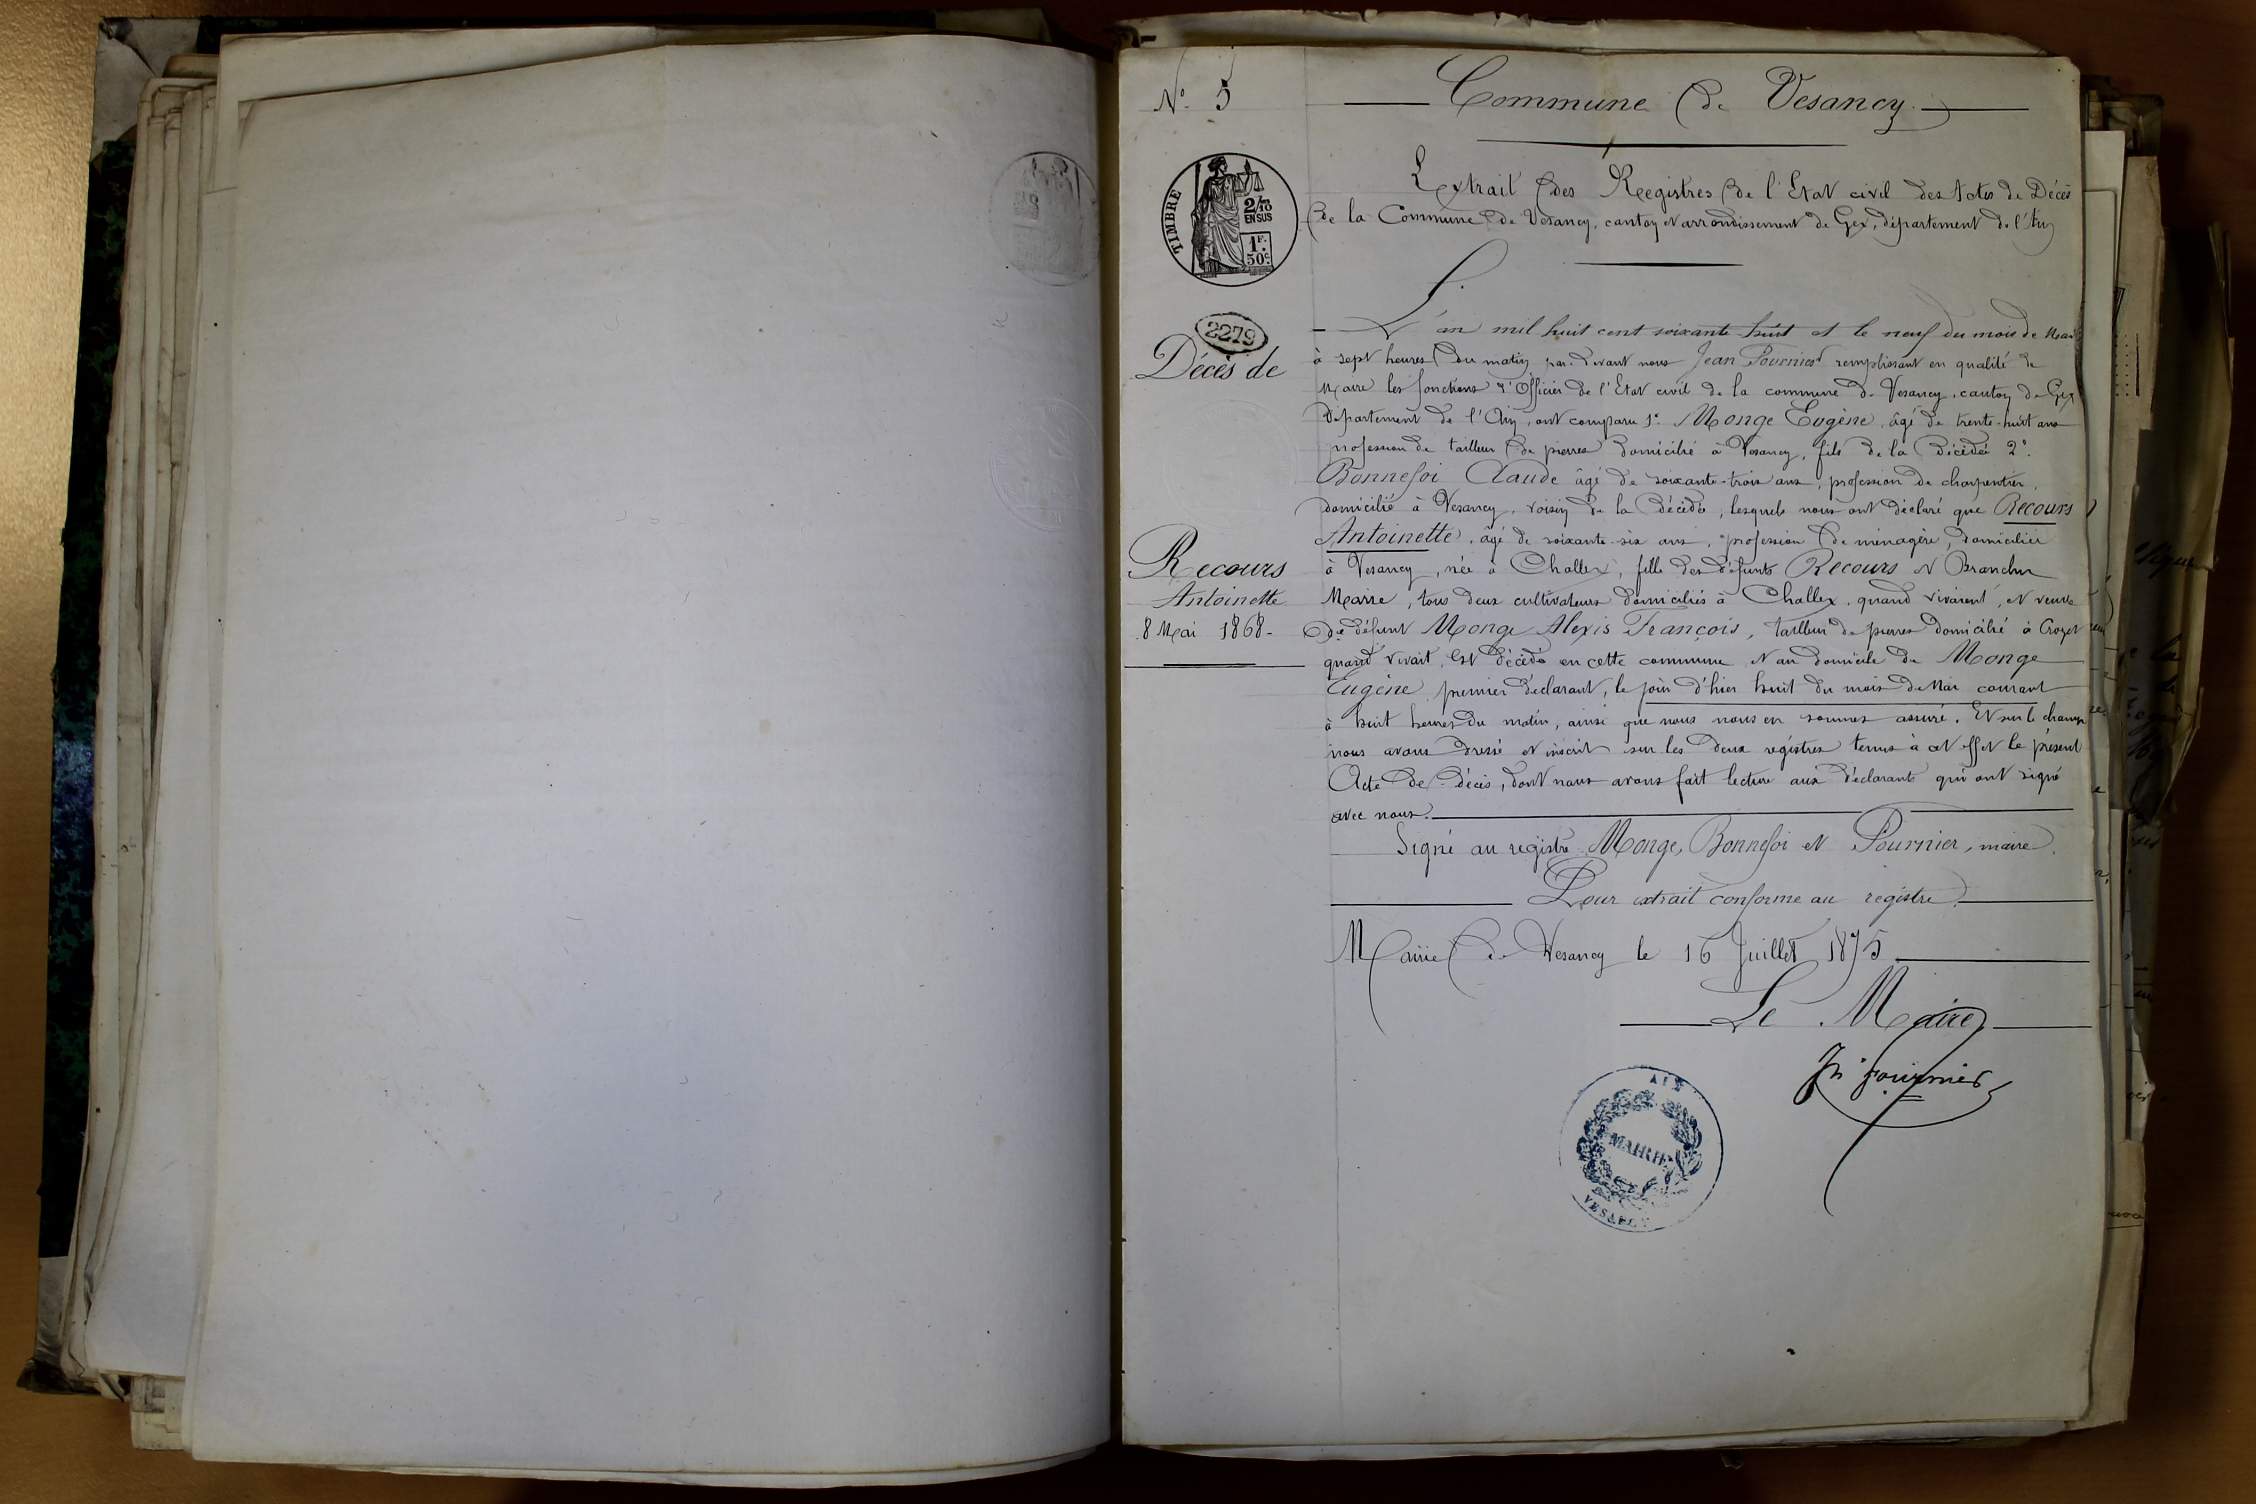 N° 5
Commune de Vesancy
Extrait des Régistres de l'Etat civil des Actes de Décès
de la Commune de Vesancy, canton et arrondissement de Gex, département de l'Ain
TIMBRE
2/10
EN SUS
1F.
50c.
2279
Décès de
Recours
Antoinette
8 Mai 1868.
L'an mil huit cent soixante huit et le neuf du mois de Mai
à sept heures du matin, par devant nous Jean Fournier remplissant en qualité de
Maire les fonctions d'Officier de l'Etat civil de la commune de Vesancy, canton de Gex
Département de l'Ain, ont comparu 1° Monge Eugène, âgé de trente-huit ans
profession de tailleur de pierres domicilié à Vesancy, fils de la Décédée 2°
Bonnefoi Claude âgé de soixante-trois ans, profession de charpentier,
domicilié à Vesancy, voisin de la Décédée, lesquels nous ont déclaré que Recours
Antoinette, âgé de soixante-six ans, profession de ménagère, domiciliée
à Vesancy, née à Challex, fille des défunts Recours et
Marie, tous deux cultivateurs domiciliés à Challex, quand vivaient, et veuve
de défunt Monge Alexis François, tailleur de pierres domicilié à Crozet
quand vivait, Est décédée en cette commune et au domicile de Monge
Eugène, premier déclarant, le jour d'hier huit du mois de Mai courant
à huit heures du matin, ainsi que nous nous en sommes assuré. Et sur le champ
nous avons dressé et inscrit sur les deux régistres tenus à cet effet le présent
Acte de décès, dont nous avons fait lecture aux déclarants qui ont signé
avec nous.
Signé au régistre Monge, Bonnefoi et Fournier, maire.
Pour extrait conforme au régistre.
Mairie de Vesancy le 16 Juillet 1875
Le Maire
Jn Fournier
AIN
MAIRIE
VESANCY